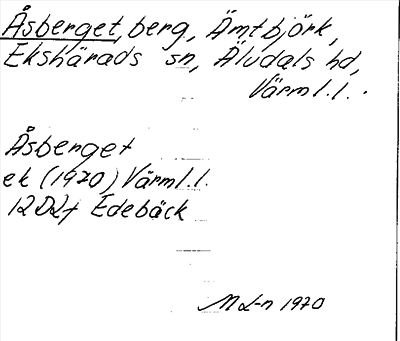 Åsberget, berg, Ämtbjörk,
Ekshärads sn, Älvdals hd,
Värml.l.
Åsberget
ek (1970) Värml.l.
12D2f Edebäck
ML-n 1970